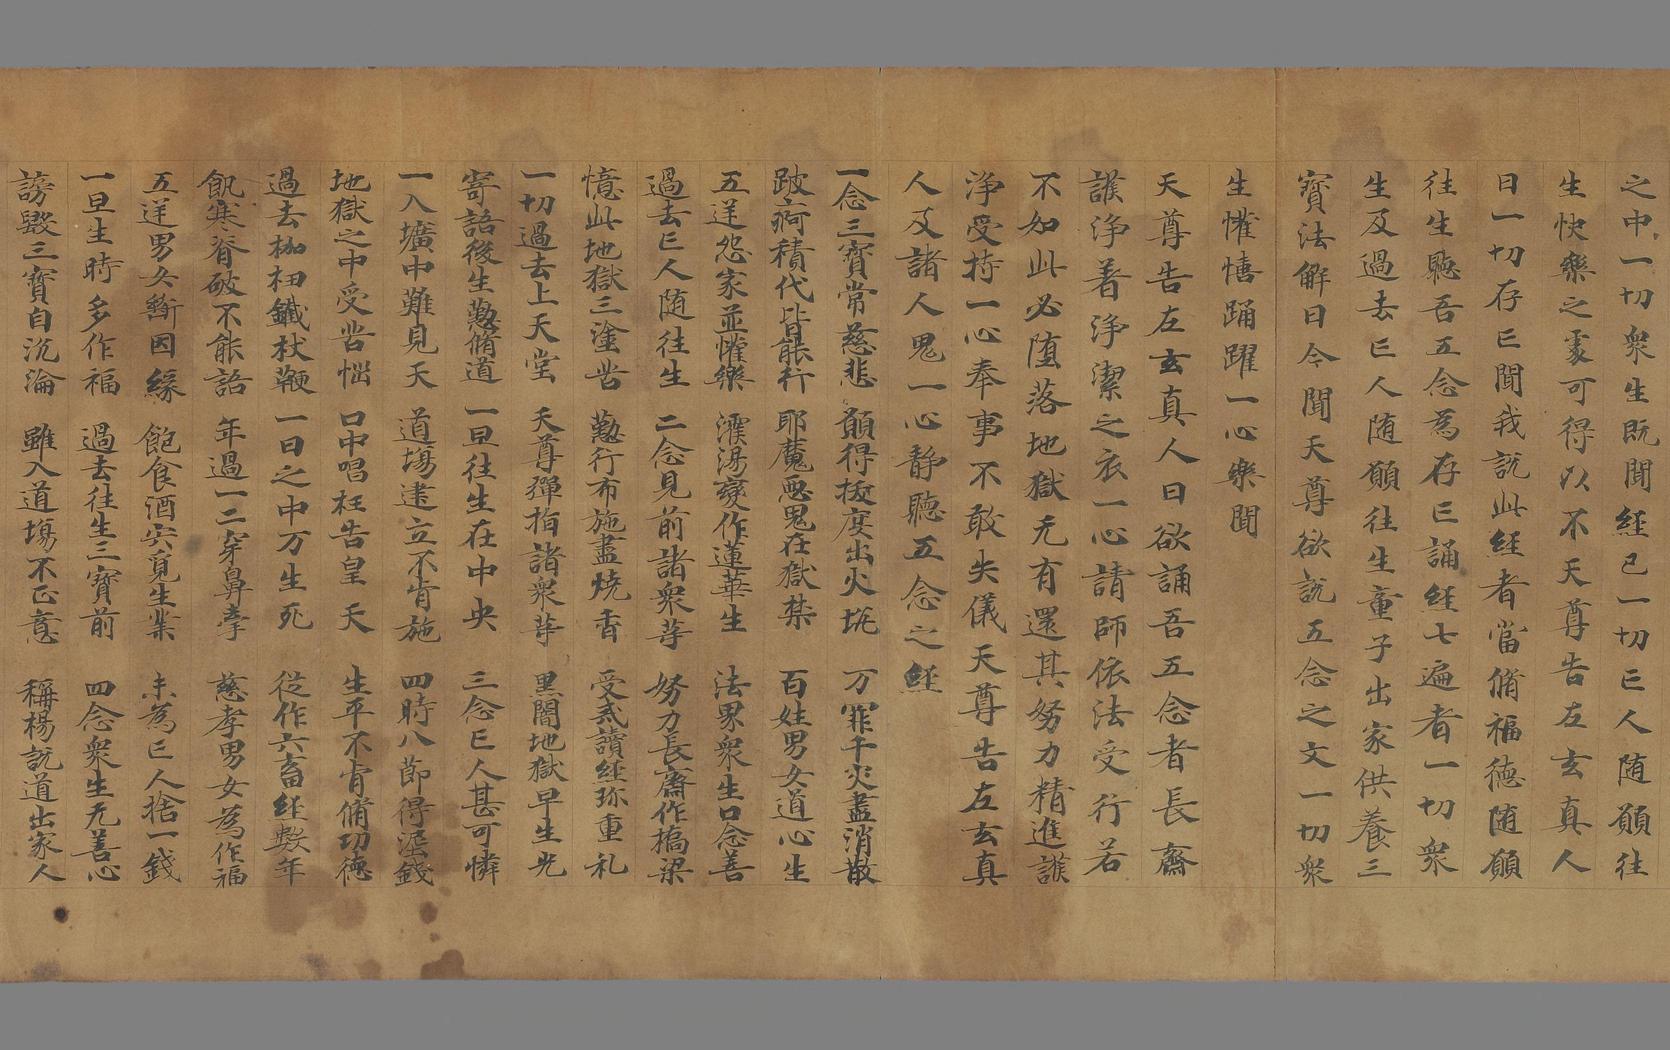 之中一切衆生既聞經已一切亡人随願往
生快樂之處可得以不天尊告左玄真人
曰一切存亡聞我説此經者當脩福德随願
往生聽吾五念為存亡誦經七遍者一切衆
生及過去亡人随願往生童子出家供養三
寳法解曰今聞天尊欲説五念之文一切衆
生懽憘踊躍一心樂聞
天尊告左玄真人曰欲誦吾五念者長齋
護淨著淨潔之衣一心請師依法受行若
不如此必堕落地獄无有還其努力精進護
淨受持一心奉事不敢失儀天尊告左玄真
人及諸人鬼一心静聽五念之經
一念三寳常慈悲 願得拔度出火坑 万罪千灾盡消散
跛痾積代皆能行 耶魔惡鬼在獄禁 百姓男女道心生
五逆怨家並懽樂 濩湯變作蓮華生 法界衆生口念善
過去亡人随往生 二念見前諸衆等 努力長齋作橋梁
憶此地獄三塗苦 懃行布施盡燒香 受戒讀經珎重礼
一切過去上天堂 天尊彈指諸衆等 黒闇地獄早生光
寄語後生懃脩道 一旦往生在中央 三念亡人甚可憐
一入壙中難見天 道塲建立不肯施 四時八節得湿錢
地獄之中受苦惱 口中唱枉告皇天 生平不肯脩功德
過去枷杻鐵杖鞭 一日之中万生死 從作六畜經數年
飢寒脊破不能語 年過一二穿鼻牽 慈孝男女為作福
五逆男女斷因緣 飽食酒宍覓生業 未為亡人捨一錢
一旦生時多作福 過去往生三寳前 四念衆生无善心
謗毀三寳自沉淪 雖入道塲不正意 稱楊説道出家人